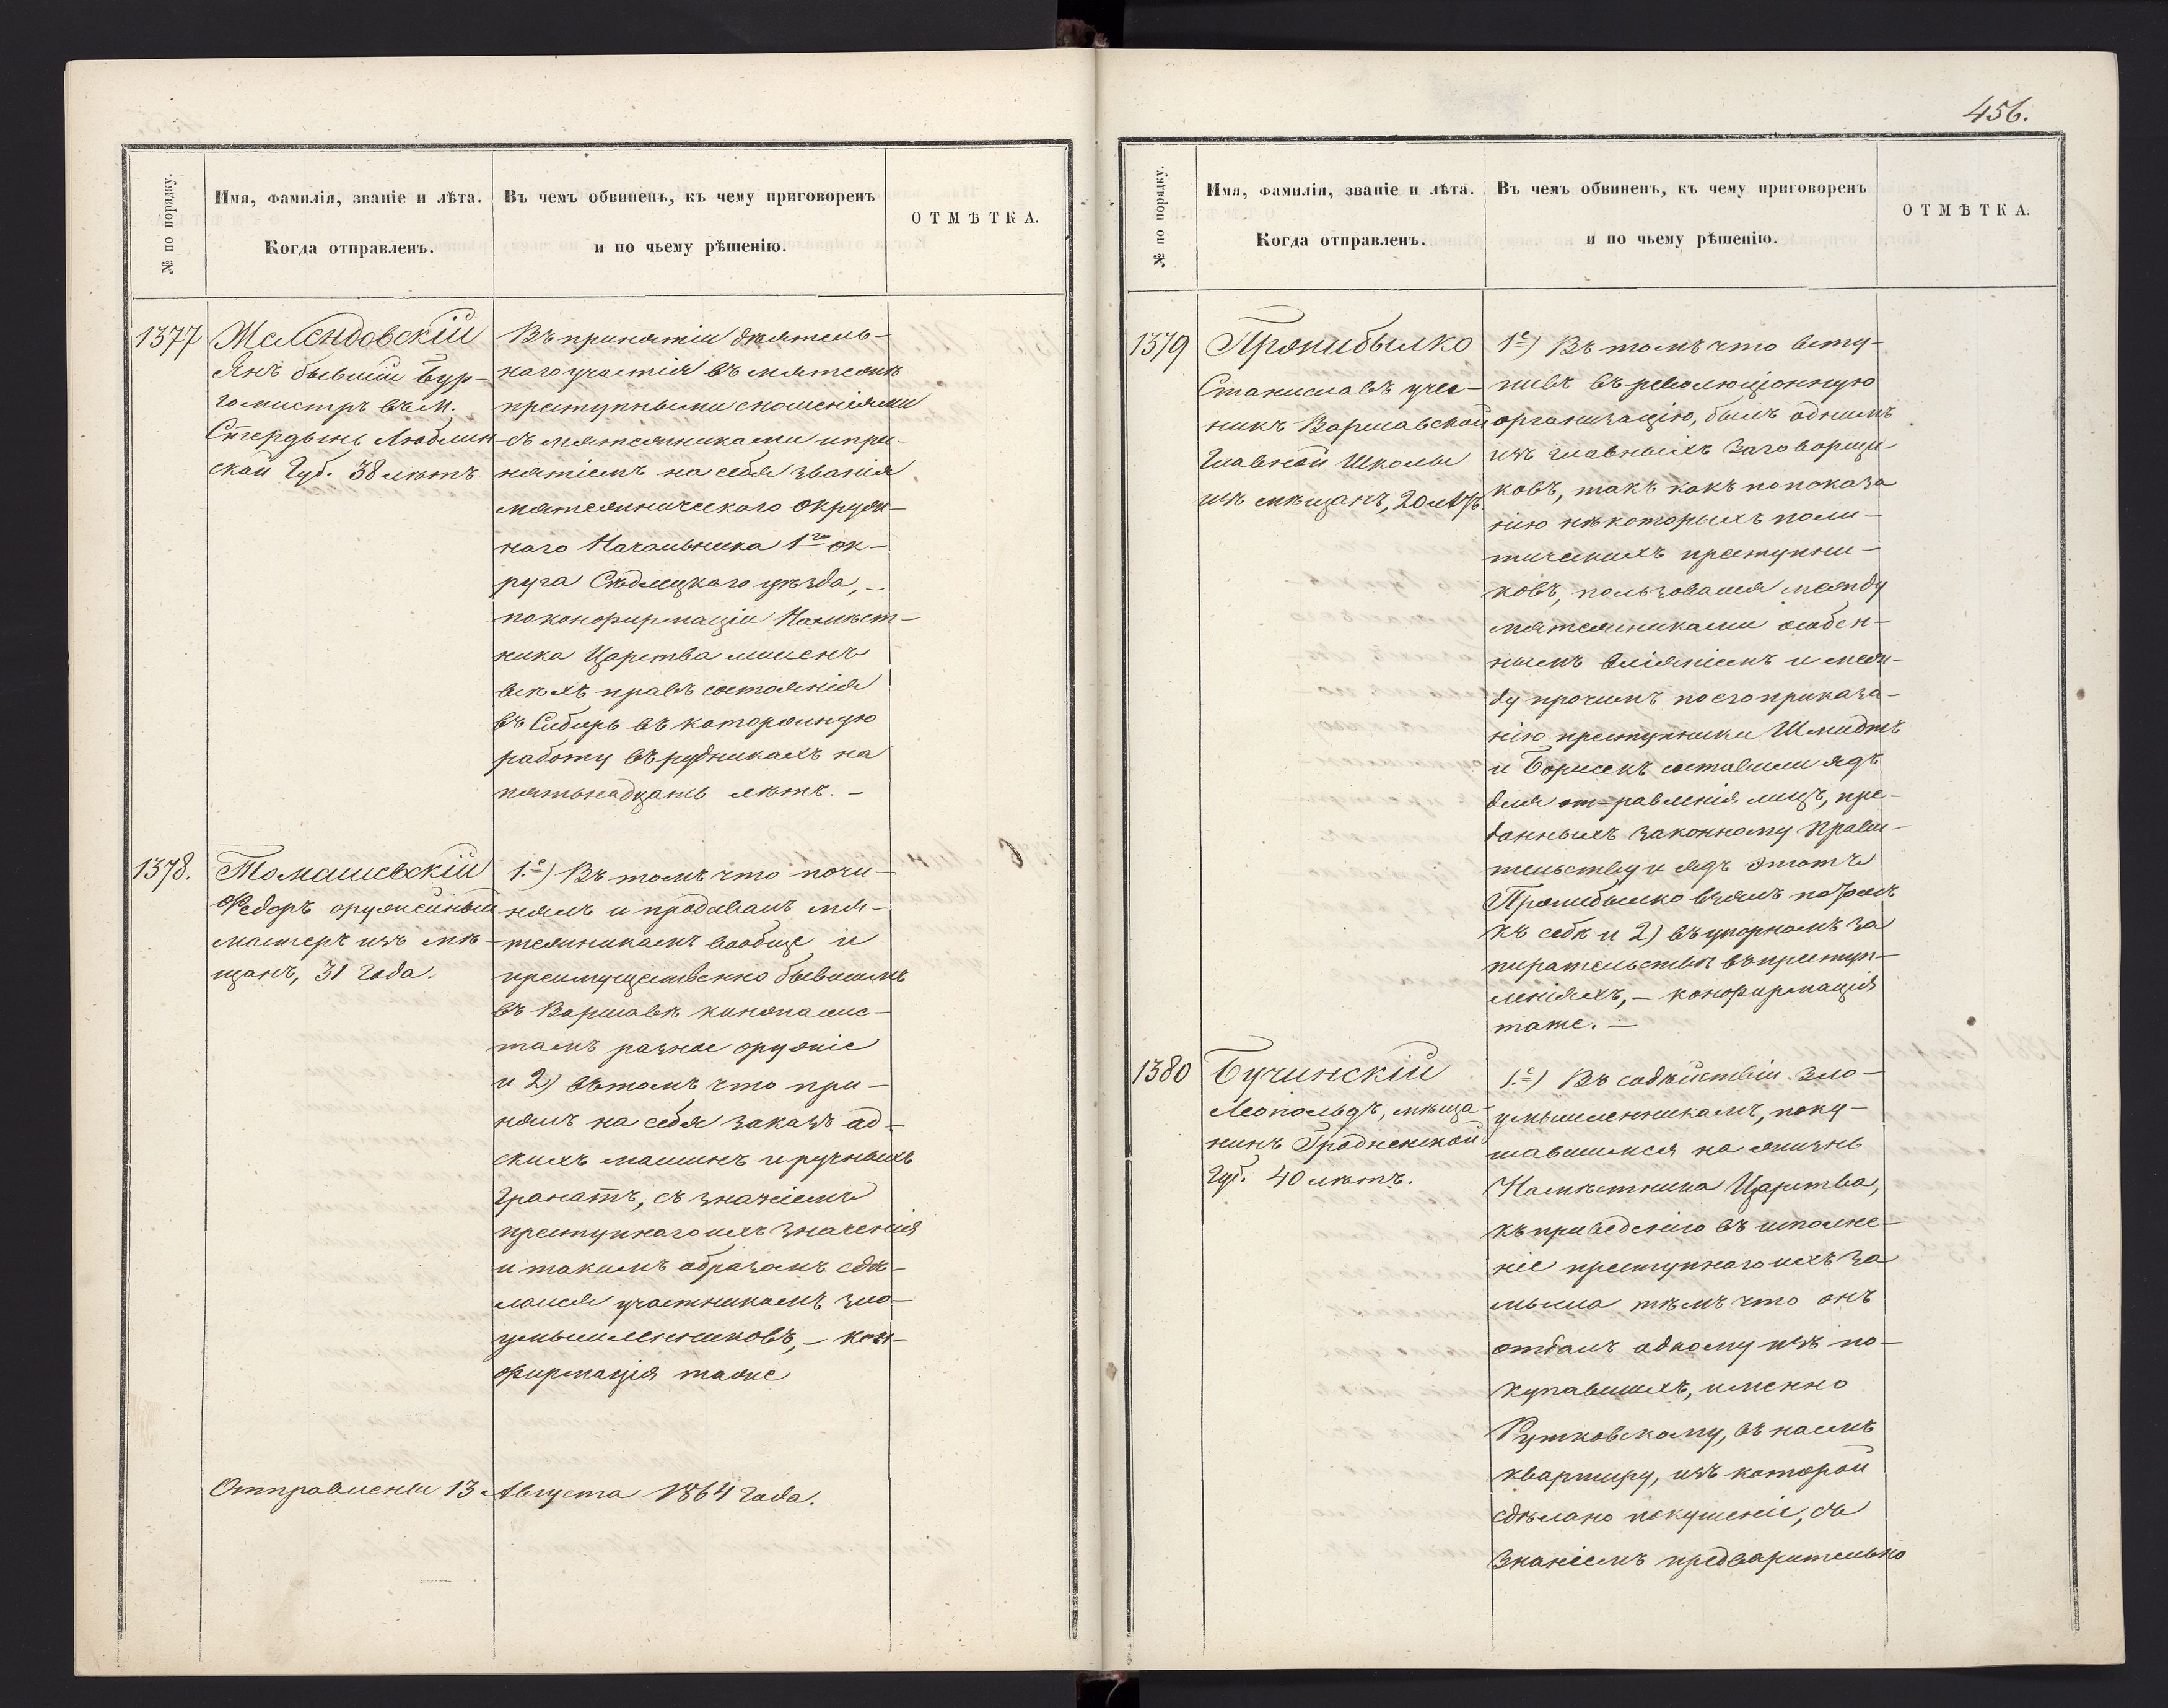 456.
№ по порядку.
Имя, фамилія, званіе и лѣта.
Когда отправленъ.
Въ чемъ обвиненъ, къ чему приговоренъ
и по чьему рѣшенію.
ОТМѢТКА.
1377
Желендовскій
Янъ бывшій бур-
гомистръ въ м.
Стердынь Люблин-
ской Губ. 38 лѣтъ
Въ принятіи дѣятель-
наго участія въ мятежѣ
преступными сношеніями
съ мятежниками и при-
нятіемъ на себя званія
мятежническаго окруж-
наго Начальника 1го ок-
руга Сѣдлецкаго уѣзда, –
по конфирмаціи Намѣст-
ника Царства лишенъ
всѣхъ правъ состоянія
въ Сибирь въ каторжную
работу въ рудникахъ на
пятьнадцать лѣтъ. –
1378.
Томашевскій
Федоръ оружейный
мастеръ изъ мѣ-
щанъ, 31 года.
1.е) Въ томъ что почи-
нялъ и продавалъ мя-
тежникамъ вообще и
преимущественно бывшимъ
въ Варшавѣ кинжалис-
тамъ разное оружіе
и 2) въ томъ что при-
нялъ на себя заказъ ад-
скихъ машинъ и ручныхъ
гранатъ, съ знаніемъ
преступнаго ихъ значенія
и такимъ образомъ сдѣ-
лался участникомъ зло-
умышленниковъ, – кон-
фирмація таже
Отправлены 13 Августа 1864 года.
№ по порядку.
Имя, фамилія, званіе и лѣта.
Когда отправленъ.
Въ чемъ обвиненъ, къ чему приговоренъ
и по чьему рѣшенію.
ОТМѢТКА.
1379
Станиславъ уче-
никъ Варшавской
Главной Школы
изъ мѣщанъ, 20 лѣтъ
1е) Въ томъ что всту-
пивъ въ революціонную
организацію, былъ однимъ
изъ главныхъ заговорщи-
ковъ, такъ какъ по показа
нію нѣкоторыхъ поли-
тическихъ преступни-
ковъ, пользовался между
мятежниками особен-
нымъ вліяніемъ и меж-
ду прочимъ по его приказа-
нію преступники Шмидтъ
и составили ядъ
для от-равленія лицъ, пре-
данныхъ законному Прави-
тельству и ядъ этотъ
взялъ потомъ
къ себѣ и 2) въ упорномъ за
пирательствѣ въ преступ-
леніяхъ, – конфирмація
таже. –
1380
Бучинскій
Леопольдъ, мѣща-
нинъ Гродненской
Губ. 40 лѣтъ.
1.е) Въ содѣйствіи зло-
умышленникамъ, поку-
шавшимся на жизнь
Намѣстника Царства,
къ приведенію въ исполне-
ніе преступнаго ихъ за
мысла тѣмъ что онъ
отдалъ одному изъ по-
купавшихъ, именно
Рутковскому, въ наемъ
квартиру, изъ которой
сдѣлано покушеніе, съ
знаніемъ предварительно